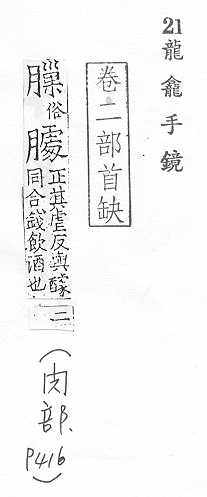 21 龍龕手鏡
卷二部首缺
俗
臄
正其虐反與醵
同合錢飲酒也
二
(肉部. P416)